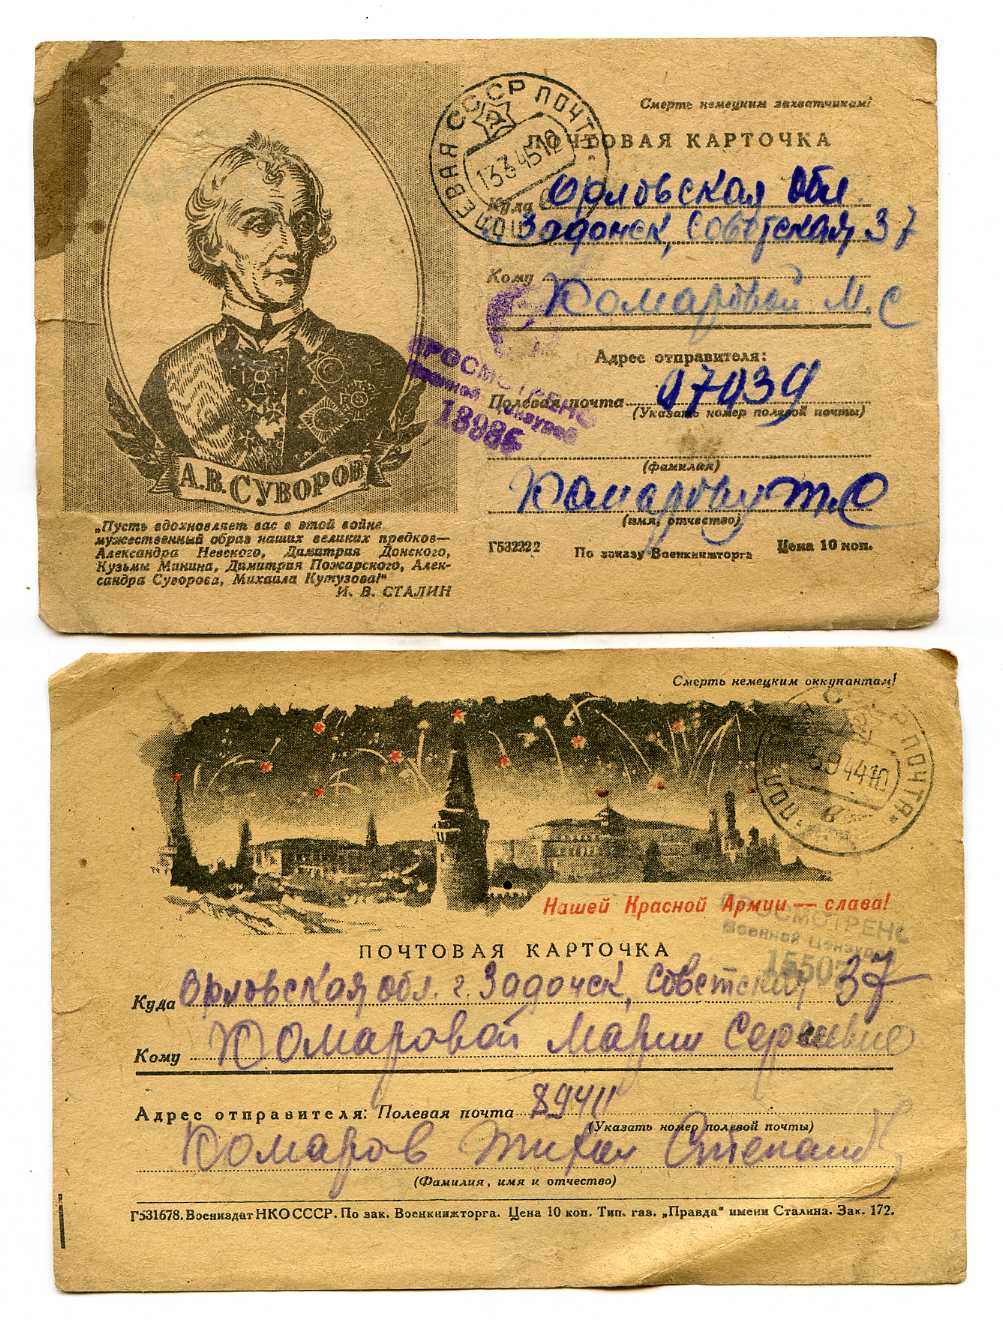 Смерть немецким захватчикам!
ПОЧТОВАЯ КАРТОЧКА
ПОЛЕВАЯ СССР ПОЧТА
13 3 45 12
Куда Орловская обл.
г. Задонск, Советская 37
Кому Комаровой М. С
ПРОСМОТРЕНО
Военной Цензурой
Адрес отправителя:
Полевая почта 07939
(Указать номер полевой почты)
(фамилия)
Т. С
(имя, отчество)
Г532222 По заказу Военкнижторга Цена 10 коп.
А.В. СУВОРОВ
„Пусть вдохновляет вас в этой войне
мужественный образ наших великих предков—
Александра Невского, Димитрия Донского,
Кузьмы Минина, Димитрия Пожарского, Алек-
сандра Суворова, Михаила Кутузова!"
И. В. СТАЛИН
Смерть немецким оккупантам!
СССР ПОЧТА
44 10
Нашей Красной Армии — слава!
ПРОСМОТРЕНО
Военной Цензурой
15507
ПОЧТОВАЯ КАРТОЧКА
Куда Орловская обл. г. Задонск, Советская 37
Кому Комаровой Марии Сергеевне
Адрес отправителя: Полевая почта 89411
(Указать номер полевой почты)
Комаров Тихон Степанов
(Фамилия, имя и отчество)
Г531678. Воениздат НКО СССР. По зак. Военкнижторга. Цена 10 коп. Тип. газ. „Правда" имени Сталина. Зак. 172.